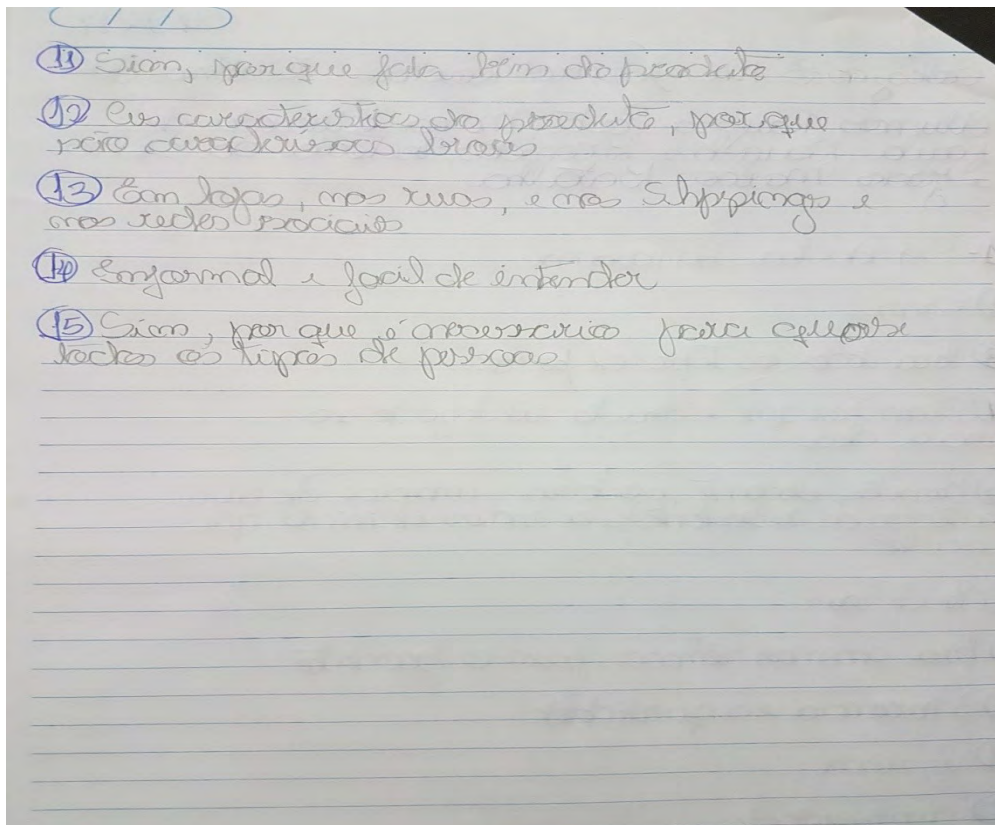 11 Sim, por que fala bem do produto
12 As caracteristicas do produto, por que
são boas
13 Em lojas, nas ruas, e nos Shppings e
nas redes sociais
14 Enformal e facil de entender
15 Sim, por que é necessario para
todos os tipos de pessoas